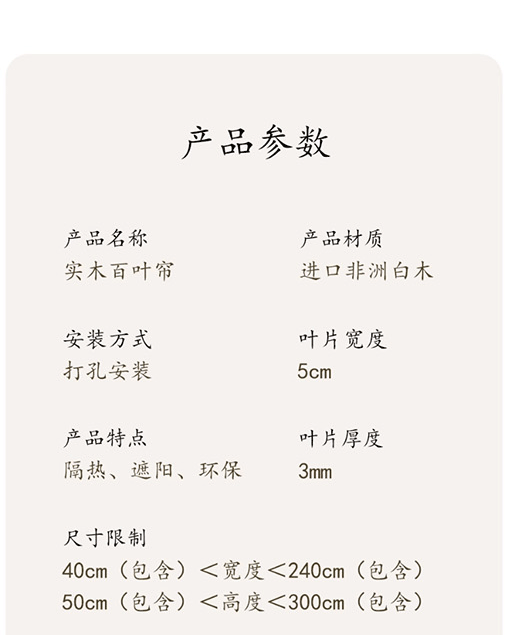 产品参数
产品名称
实木百叶帘
产品材质
进口非洲白木
安装方式
打孔安装
叶片宽度
5cm
产品特点
隔热、遮阳、环保
叶片厚度
3mm
尺寸限制
40cm（包含）＜宽度＜240cm（包含）
50cm（包含）＜高度＜300cm（包含）